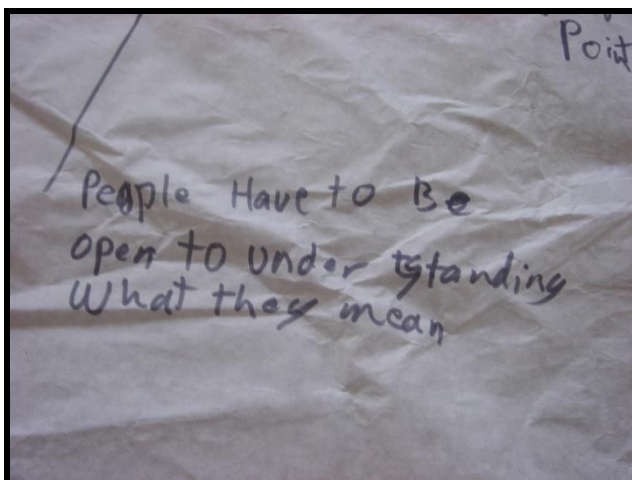 Point
People Have to Be
open to under standing
What they mean